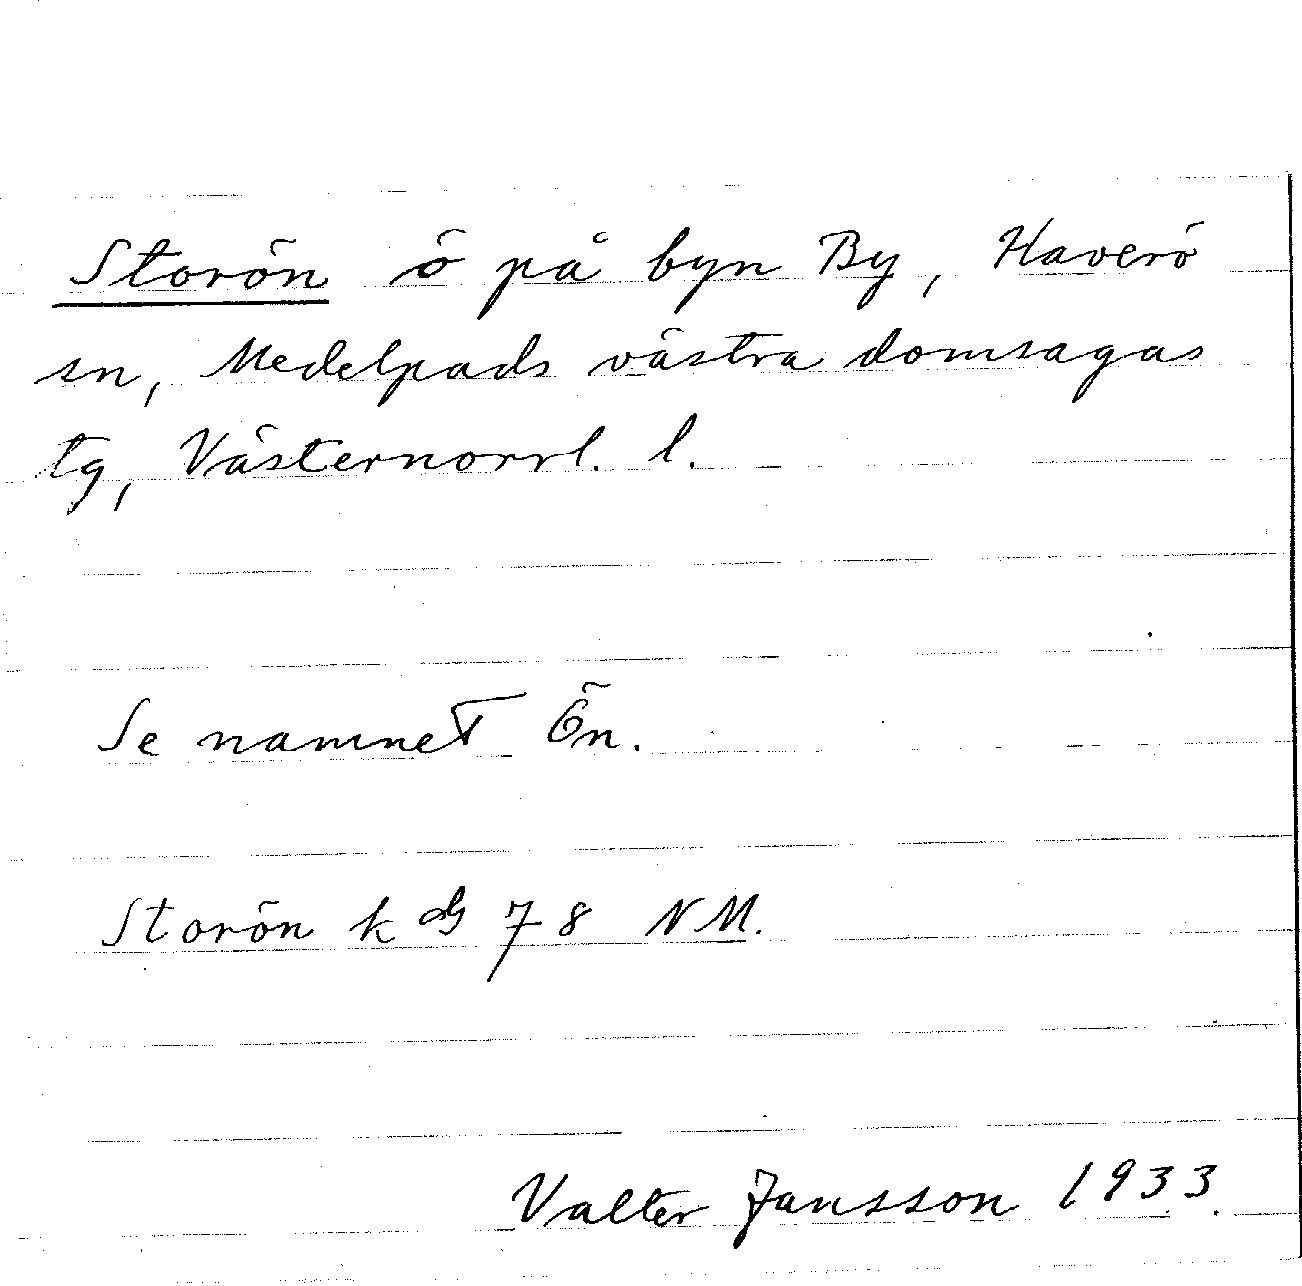 Storön ö på byn By, Haverö
sn, Medelpads västra domsagas
tg, Västernorrl. l.
Se namnet Ön.
Storön k 78 NM.
Valter Jansson 1933.